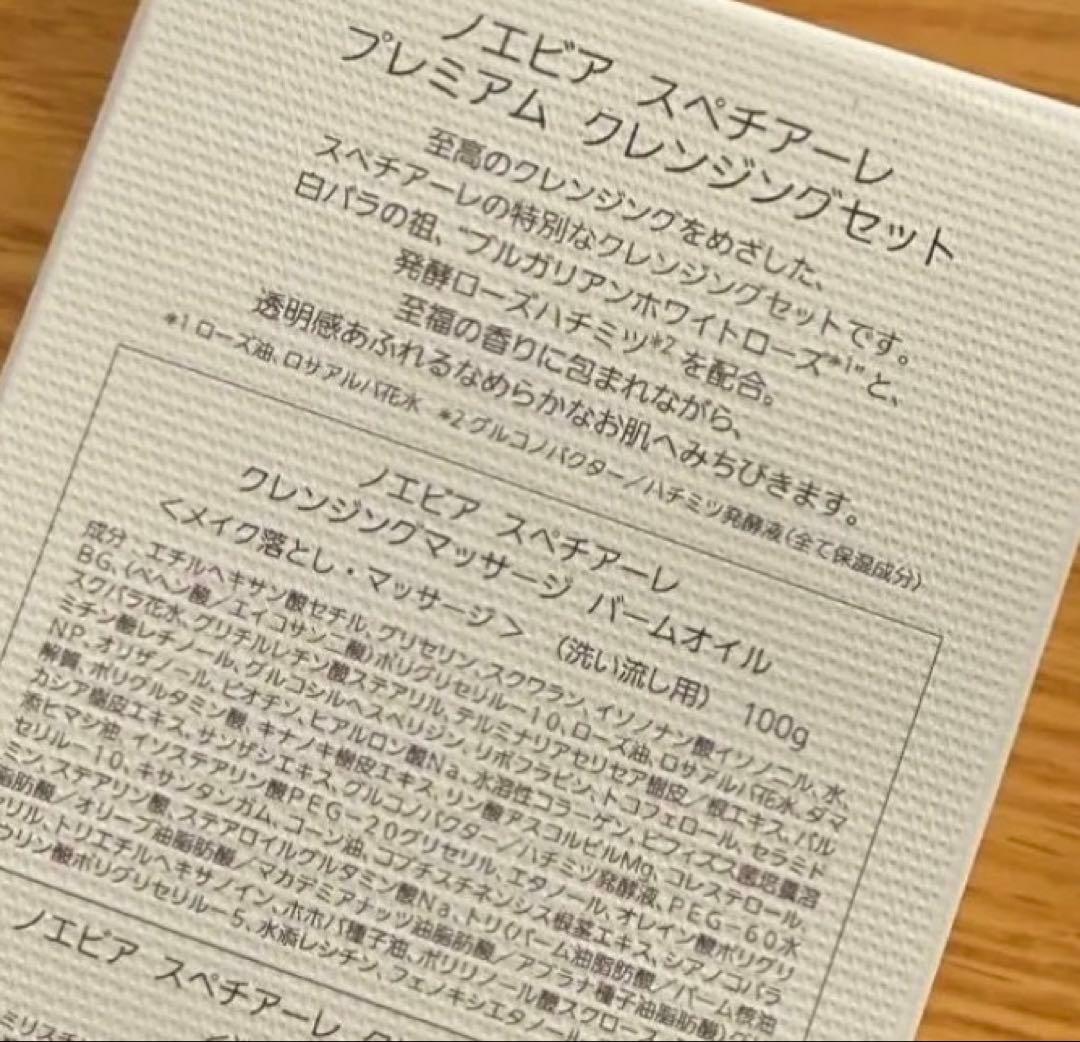 ノエビア スペチアーレ
プレミアム クレンジングセット
至高のクレンジングをめざした、
スペチアーレの特別なクレンジングセットです。
白バラの祖、“ブルガリアンホワイトローズ*1”と、
発酵ローズハチミツ*2を配合。
至福の香りに包まれながら、
透明感あふれるなめらかなお肌へみちびきます。
*1 ローズ油、ロサアルバ花水 *2 グルコノバクター／ハチミツ発酵液(全て保湿成分)
ノエビア スペチアーレ
クレンジングマッサージ バームオイル
＜メイク落とし・マッサージ＞ (洗い流し用) 100g
成分：エチルヘキサン酸セチル、グリセリン、スクワラン、イソノナン酸イソノニル、水、
BG、(ベヘン酸／エイコサン二酸)ポリグリセリル－10、ローズ油、ロサアルバ花水、ダマ
スクバラ花水、グリチルレチン酸ステアリル、テルミナリアセリセア樹皮／根エキス、パル
ミチン酸レチノール、グルコシルヘスペリジン、リボフラビン、トコフェロール、セラミド
NP、オリザノール、ビオチン、ヒアルロン酸Na、水溶性コラーゲン、ビフィズス菌培養溶
解質、ポリグルタミン酸、キナノキ樹皮エキス、リン酸アスコルビルMg、コレステロール、
カシア樹皮エキス、サンザシエキス、グルコノバクター／ハチミツ発酵液、PEG－60水
添ヒマシ油、イソステアリン酸PEG－20グリセリル、エタノール、オレイン酸ポリグリ
セリル－10、キサンタンガム、コーン油、コプチスチネンシス根茎エキス、シアノコバラ
ミン、ステアリン酸、ステアロイルグルタミン酸Na、トリ(パーム油脂肪酸／パーム核油
脂肪酸／オリーブ油脂肪酸／マカデミアナッツ油脂肪酸／アブラナ種子油脂肪酸)グ
リル、トリエチルヘキサノイン、ホホバ種子油、ポリリノール酸スクロース、
ウリン酸ポリグリセリル－5、水添レシチン、フェノキシエタノール
ノエビア スペチアーレ
ミリスチ